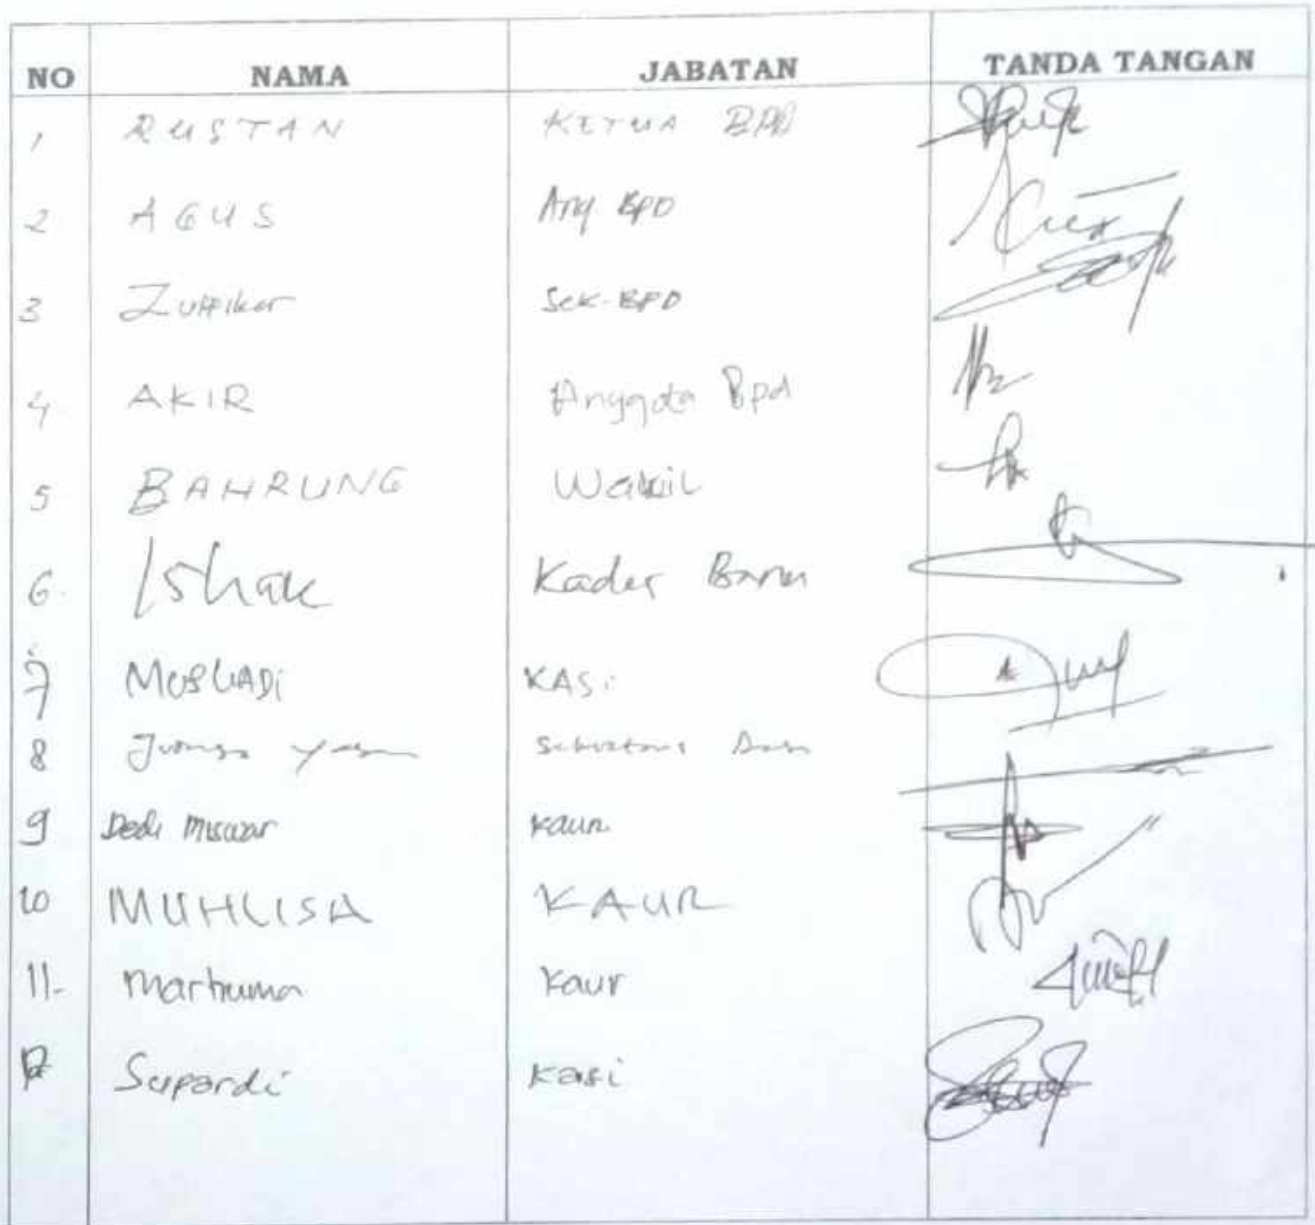 NO NAMA JABATAN TANDA TANGAN
1 RUSTAN KETUA BPD
2 AGUS Ang. BPD
3 Zulfikar Sek-BPD
4. AKIR Anggota Bpd
5 BAHRUNG Wakil
6. Ishak Kader
7 KASi
8
9 Dedi Miswar Kaur
10 MUHLISA KAUR
11. Marhuma Kaur
12 Supardi Kasi